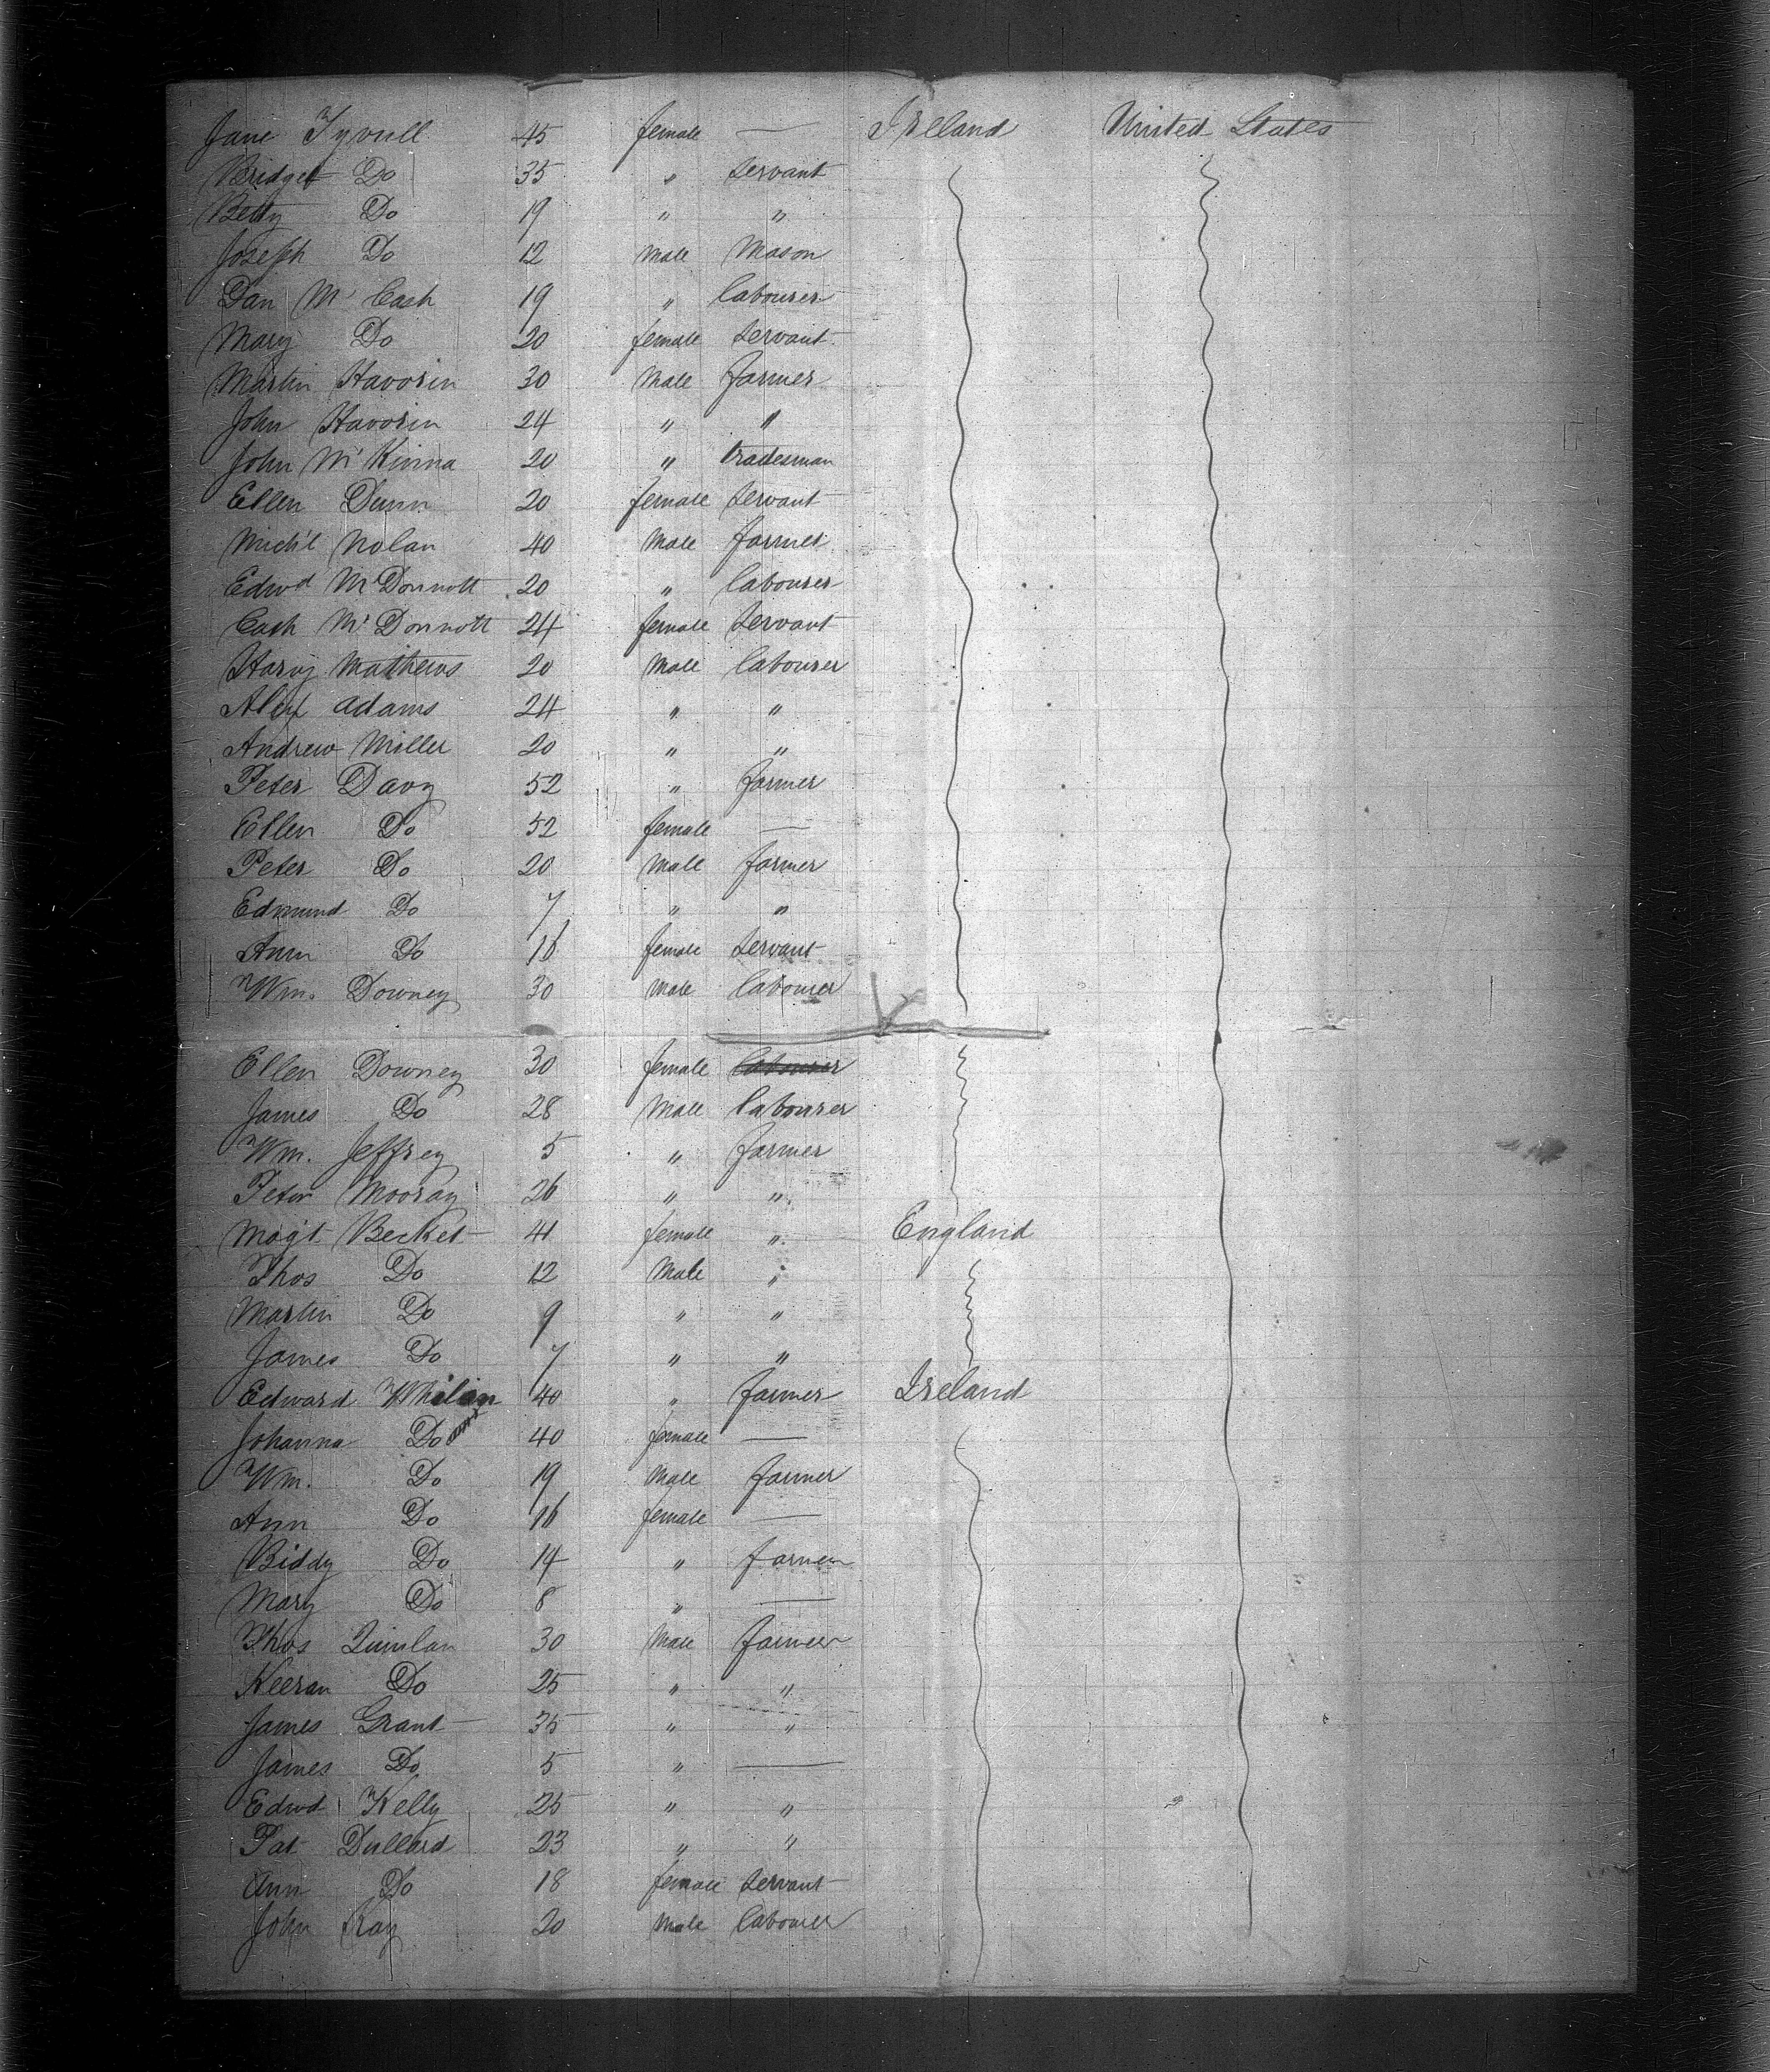 Jane Tyrrell 45 female — Ireland United States
Bridget Do 35 " servant
Betty Do 19 " "
Joseph Do 12 male Mason
Dan Mc Cash 19 " labourer
Mary Do 20 female servant
Martin Havorin 30 Male farmer
John Havorin 24 " "
John Mc Kinna 20 " tradesman
Ellen Dunn 20 female servant
Mich'l Nolan 40 Male farmer
Edwd McDonnott 20 " labourer
Cash McDonnott 24 female servant
Harvy Mathews 20 Male labourer
Alex Adams 24 " "
Andrew Miller 20 " "
Peter Davy 52 " farmer
Ellen Do 52 female —
Peter Do 20 Male farmer
Edmund Do 7 " "
Ann Do 16 female servant
Wm. Downey 30 male labourer
Ellen Downey 30 female labourer
James Do 28 Male labourer
Wm. Jeffrey 5 " farmer
Peter Mooray 26 " "
Mag't Becket 41 female " England
Thos Do 12 Male "
Martin Do 9 " "
James Do 7 " "
Edward Whilan 40 " farmer Ireland
Johanna Do 40 female —
Wm. Do 19 Male farmer
Ann Do 16 female —
Biddy Do 14 " farmer
Mary Do 8 " —
Thos Quinlan 30 Male farmer
Keeran Do 25 " "
James Grant 35 " "
James Do 5 " —
Edwd Kelly 25 " "
Pat Dullard 23 " "
Ann Do 18 female servant
John Ray 20 Male labourer